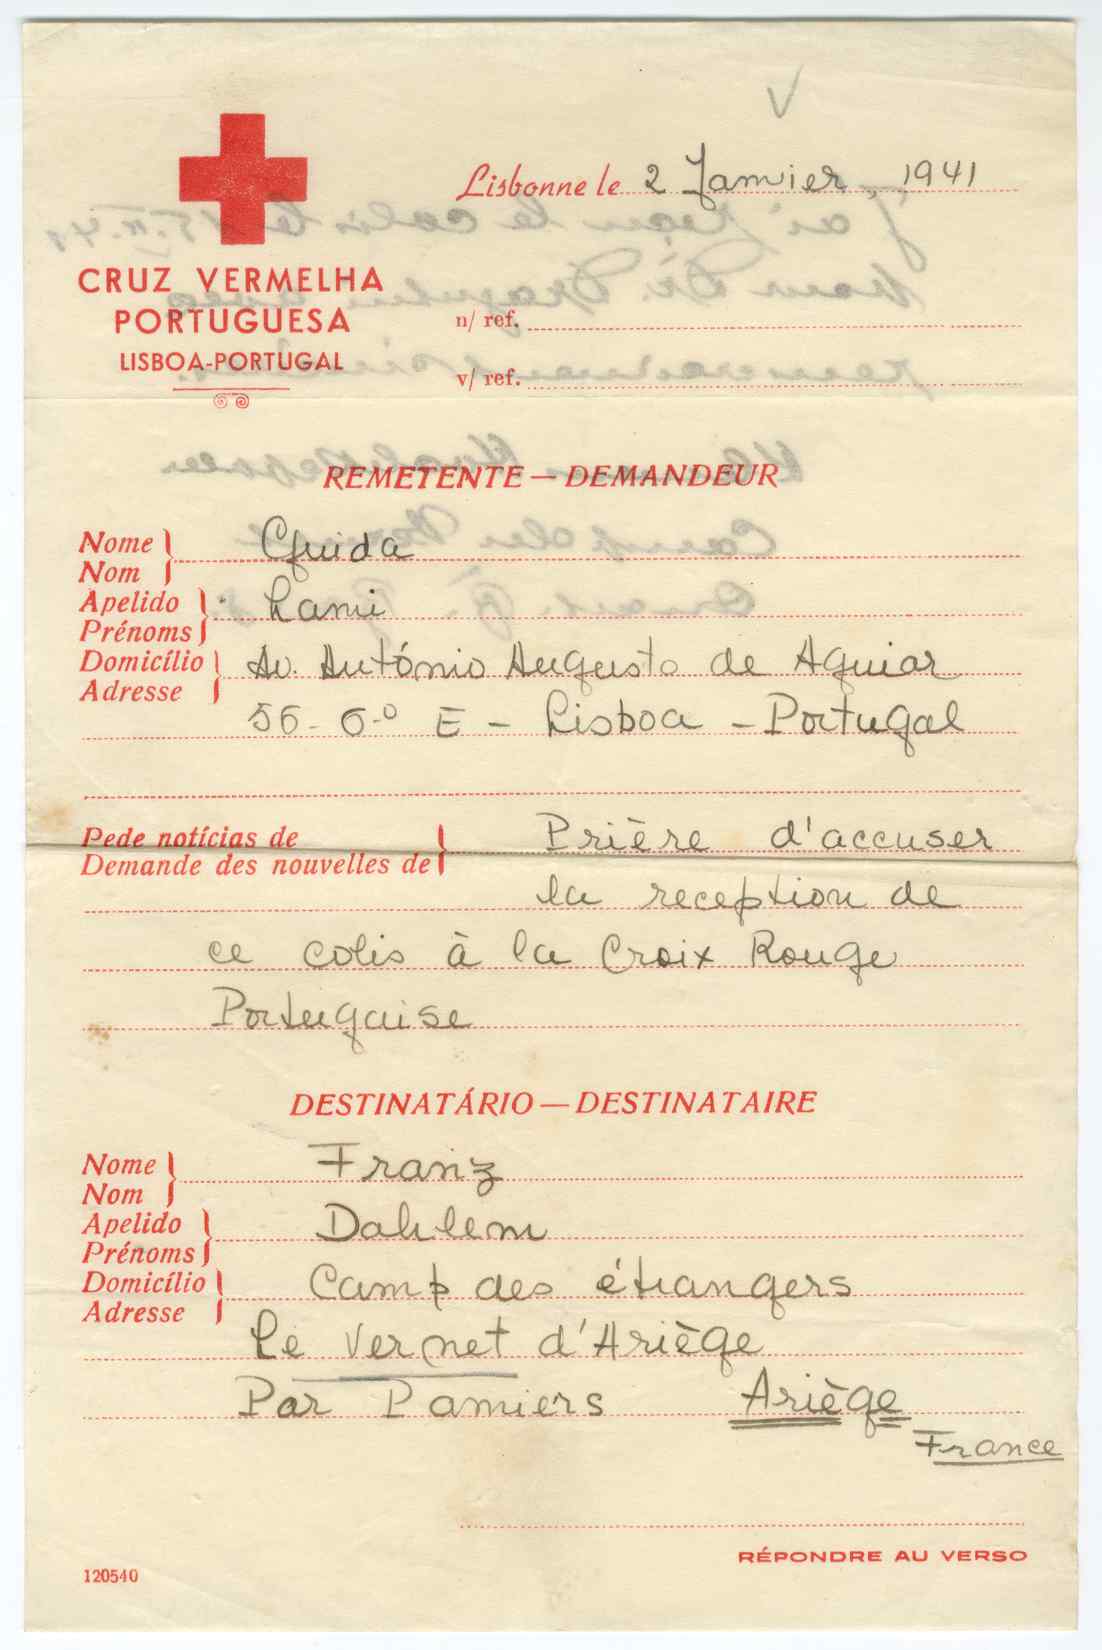 Lisbonne le 2 Janvier, 1941
CRUZ VERMELHA
PORTUGUESA
LISBOA-PORTUGAL
n/ ref.
v/ ref.
REMETENTE — DEMANDEUR
Nome
Nom
Guida
Apelido
Prénoms
Lami
Domicílio
Adresse
Av. António Augusto de Aguiar
56-6.º E - Lisboa - Portugal
Pede notícias de
Demande des nouvelles de
Prière d'accuser
la reception de
ce colis à la Croix Rouge
Portugaise
DESTINATÁRIO — DESTINATAIRE
Nome
Nom
Franz
Apelido
Prénoms
Dahlem
Domicílio
Adresse
Camp des étrangers
Le Vernet d'Ariège
Par Pamiers Ariège
France
RÉPONDRE AU VERSO
120540